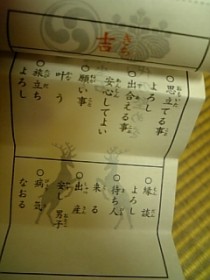 きち
吉
○思立てる事
よろし
○出合える事
安心してよい
○願い事
叶う
○旅立ち
よろし
○縁談
よろし
○待ち人
来る
○出産
安し 男子
○病気
なおる